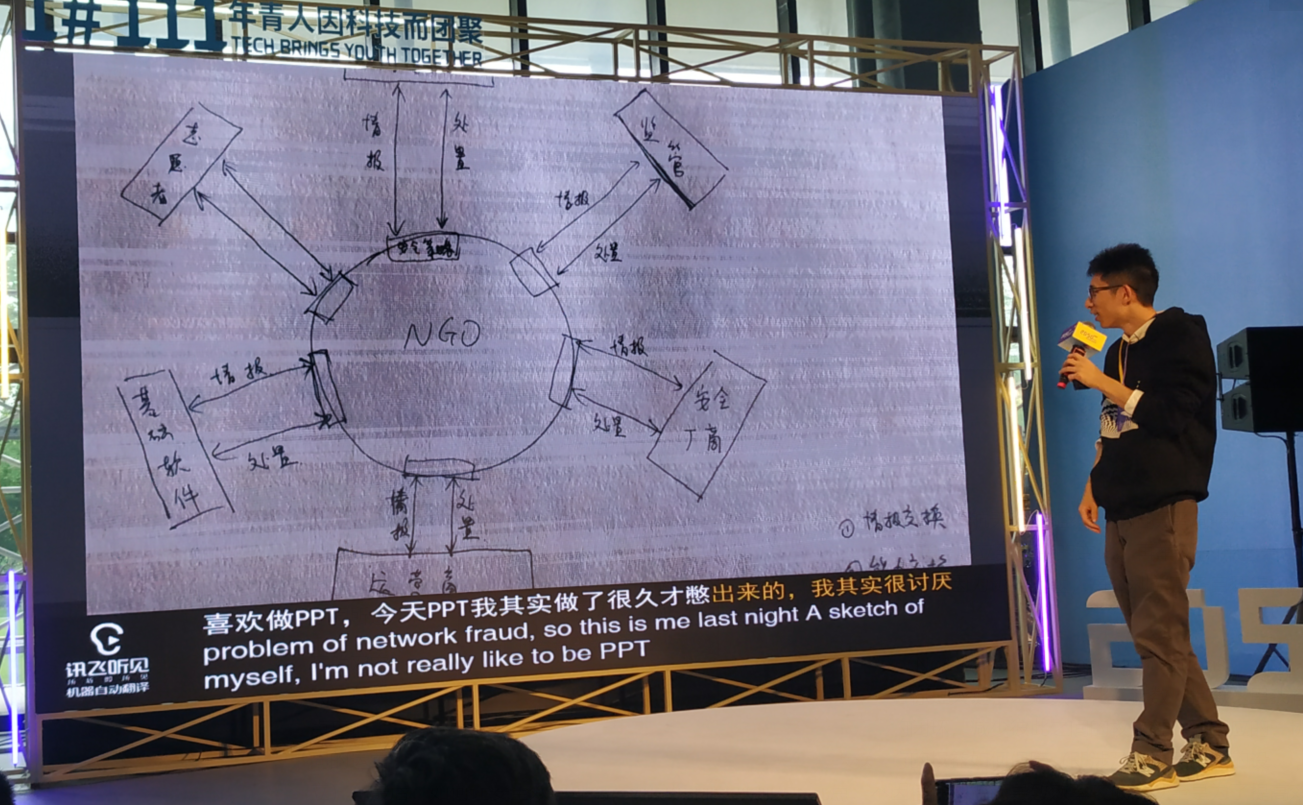 1#111
年青人因科技而团聚
TECH BRINGS YOUTH TOGETHER
志愿者
情报
处置
监管
情报
处置
NGO
情报
处置
安全厂商
基础软件
情报
处置
情报
处置
运营商
① 情报交换
喜欢做PPT，今天PPT我其实做了很久才憋出来的，我其实很讨厌
problem of network fraud, so this is me last night A sketch of
myself, I'm not really like to be PPT
讯飞听见
机器自动翻译